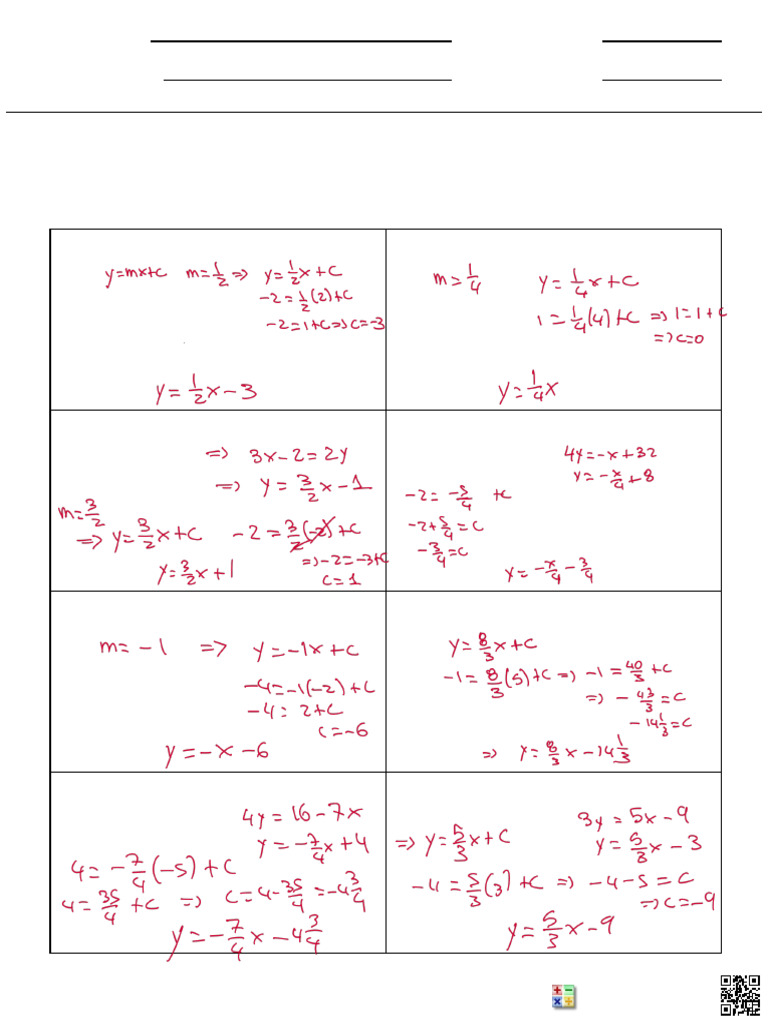 y=mx+c m=1/2 ⇒ y=1/2x+c
-2=1/2(2)+c
-2=1+c⇒c=-3
y=1/2x-3
m=1/4 y=1/4x+c
1=1/4(4)+c ⇒1=1+c
⇒c=0
y=1/4x
⇒ 3x-2=2y
⇒ y=3/2x-1
m=3/2
⇒y=3/2x+c -2=3/2(-2)+c
⇒-2=-3+c
c=1
y=3/2x+1
4y=-x+32
y=-x/4+8
-2=-5/4 +c
-2+5/4=c
-3/4=c
y=-x/4-3/4
m=-1 ⇒ y=-1x+c
-4=-1(-2)+c
-4=2+c
c=-6
y=-x-6
y=8/3x+c
-1=8/3(5)+c⇒-1=40/3+c
⇒-43/3=c
-14 1/3=c
⇒ y=8/3x-14 1/3
4y=16-7x
y=-7/4x+4
4=-7/4(-5)+c
4=35/4+c ⇒ c=4-35/4=-4 3/4
y=-7/4x-4 3/4
3y=5x-9
⇒y=5/3x+c y=5/3x-3
-4=5/3(3)+c⇒-4-5=c
⇒c=-9
y=5/3x-9